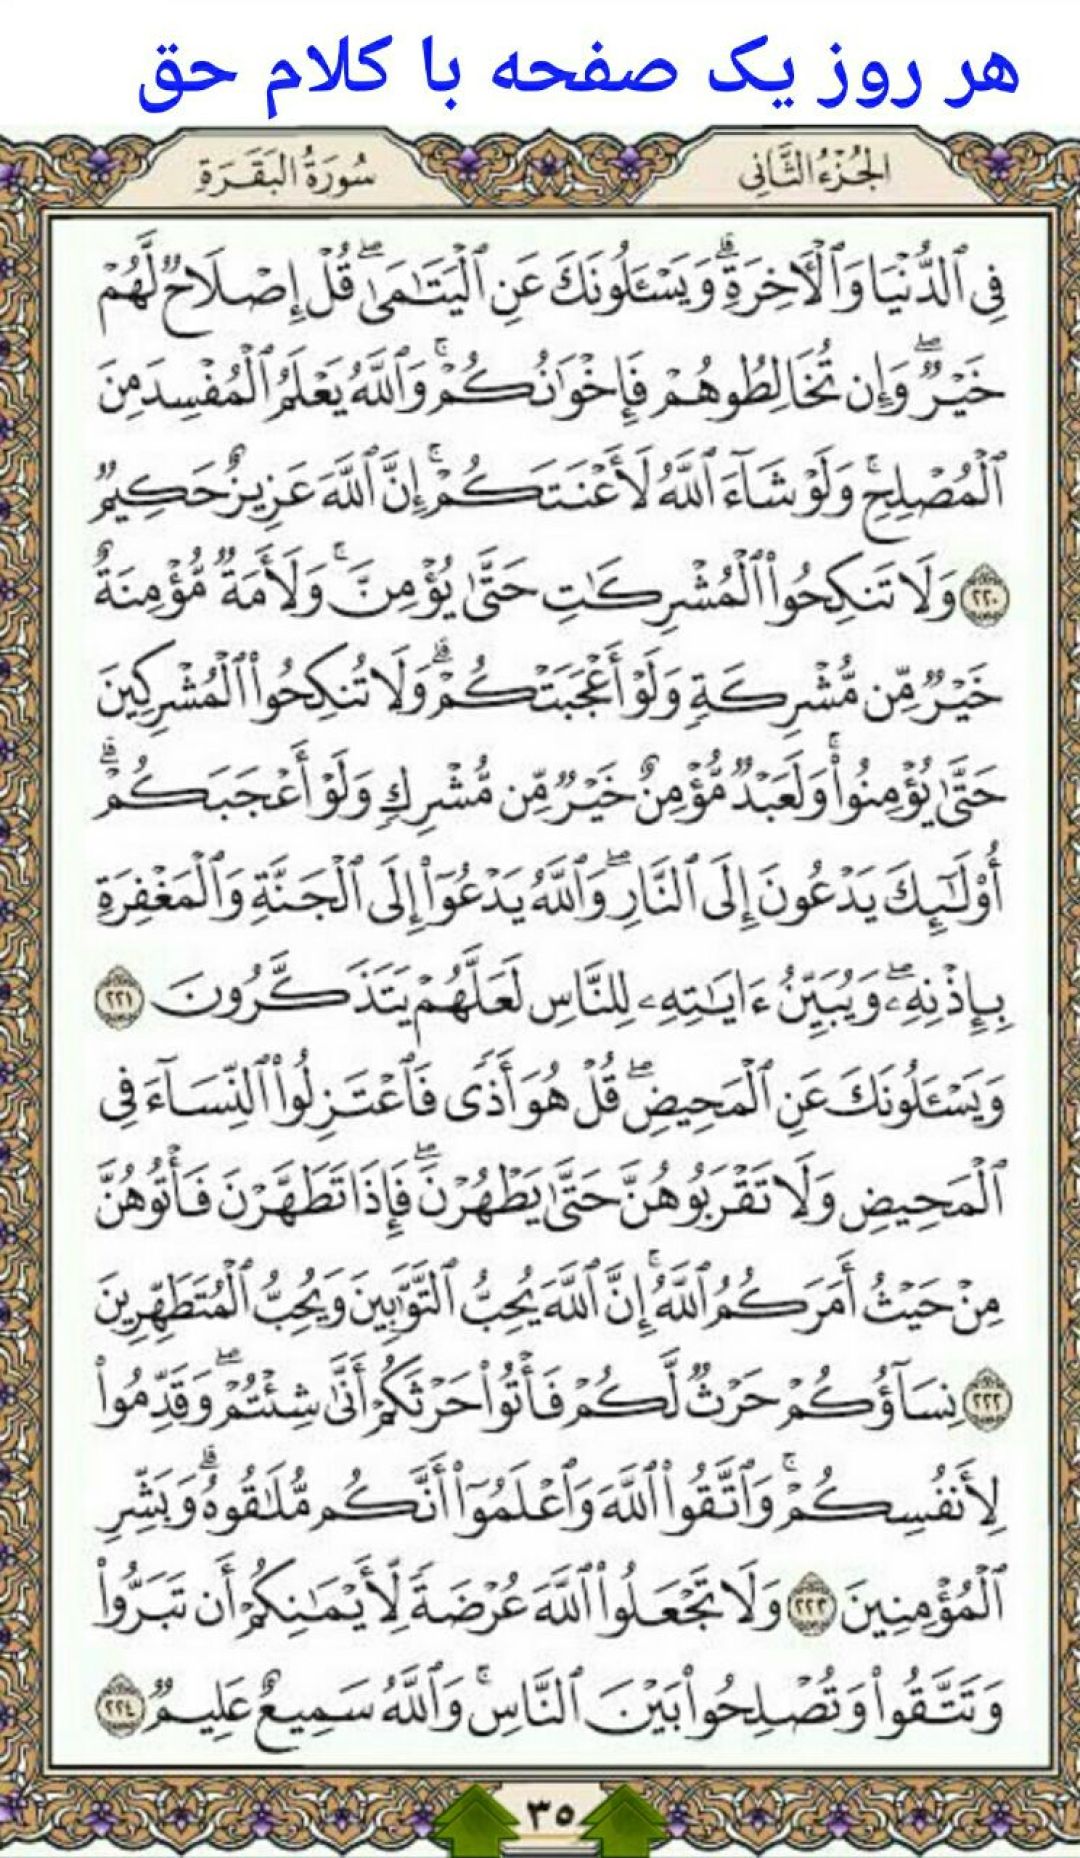 هر روز یک صفحه با کلام حق
الجُزْءُ الثَّانِی
سُورَةُ البَقَرَةِ
فِي ٱلدُّنْيَا وَٱلْأَخِرَةِۗ وَيَسْـَٔلُونَكَ عَنِ ٱلْيَتَٰمَىٰۖ قُلْ إِصْلَاحٌ لَّهُمْ
خَيْرٌۖ وَإِن تُخَالِطُوهُمْ فَإِخْوَٰنُكُمْۚ وَٱللَّهُ يَعْلَمُ ٱلْمُفْسِدَ مِنَ
ٱلْمُصْلِحِۚ وَلَوْ شَآءَ ٱللَّهُ لَأَعْنَتَكُمْۚ إِنَّ ٱللَّهَ عَزِيزٌ حَكِيمٌ
٢٢٠ وَلَا تَنكِحُوا۟ ٱلْمُشْرِكَٰتِ حَتَّىٰ يُؤْمِنَّۚ وَلَأَمَةٌ مُّؤْمِنَةٌ
خَيْرٌ مِّن مُّشْرِكَةٍ وَلَوْ أَعْجَبَتْكُمْۗ وَلَا تُنكِحُوا۟ ٱلْمُشْرِكِينَ
حَتَّىٰ يُؤْمِنُوا۟ۚ وَلَعَبْدٌ مُّؤْمِنٌ خَيْرٌ مِّن مُّشْرِكٍ وَلَوْ أَعْجَبَكُمْۗ
أُو۟لَٰٓئِكَ يَدْعُونَ إِلَى ٱلنَّارِۖ وَٱللَّهُ يَدْعُوٓا۟ إِلَى ٱلْجَنَّةِ وَٱلْمَغْفِرَةِ
بِإِذْنِهِۦۖ وَيُبَيِّنُ ءَايَٰتِهِۦ لِلنَّاسِ لَعَلَّهُمْ يَتَذَكَّرُونَ ٢٢١
وَيَسْـَٔلُونَكَ عَنِ ٱلْمَحِيضِۖ قُلْ هُوَ أَذًى فَٱعْتَزِلُوا۟ ٱلنِّسَآءَ فِي
ٱلْمَحِيضِ وَلَا تَقْرَبُوهُنَّ حَتَّىٰ يَطْهُرْنَۖ فَإِذَا تَطَهَّرْنَ فَأْتُوهُنَّ
مِنْ حَيْثُ أَمَرَكُمُ ٱللَّهُۚ إِنَّ ٱللَّهَ يُحِبُّ ٱلتَّوَّٰبِينَ وَيُحِبُّ ٱلْمُتَطَهِّرِينَ
٢٢٢ نِسَآؤُكُمْ حَرْثٌ لَّكُمْ فَأْتُوا۟ حَرْثَكُمْ أَنَّىٰ شِئْتُمْۖ وَقَدِّمُوا۟
لِأَنفُسِكُمْۚ وَٱتَّقُوا۟ ٱللَّهَ وَٱعْلَمُوٓا۟ أَنَّكُم مُّلَٰقُوهُۗ وَبَشِّرِ
ٱلْمُؤْمِنِينَ ٢٢٣ وَلَا تَجْعَلُوا۟ ٱللَّهَ عُرْضَةً لِّأَيْمَٰنِكُمْ أَن تَبَرُّوا۟
وَتَتَّقُوا۟ وَتُصْلِحُوا۟ بَيْنَ ٱلنَّاسِۚ وَٱللَّهُ سَمِيعٌ عَلِيمٌ ٢٢٤
٣٥